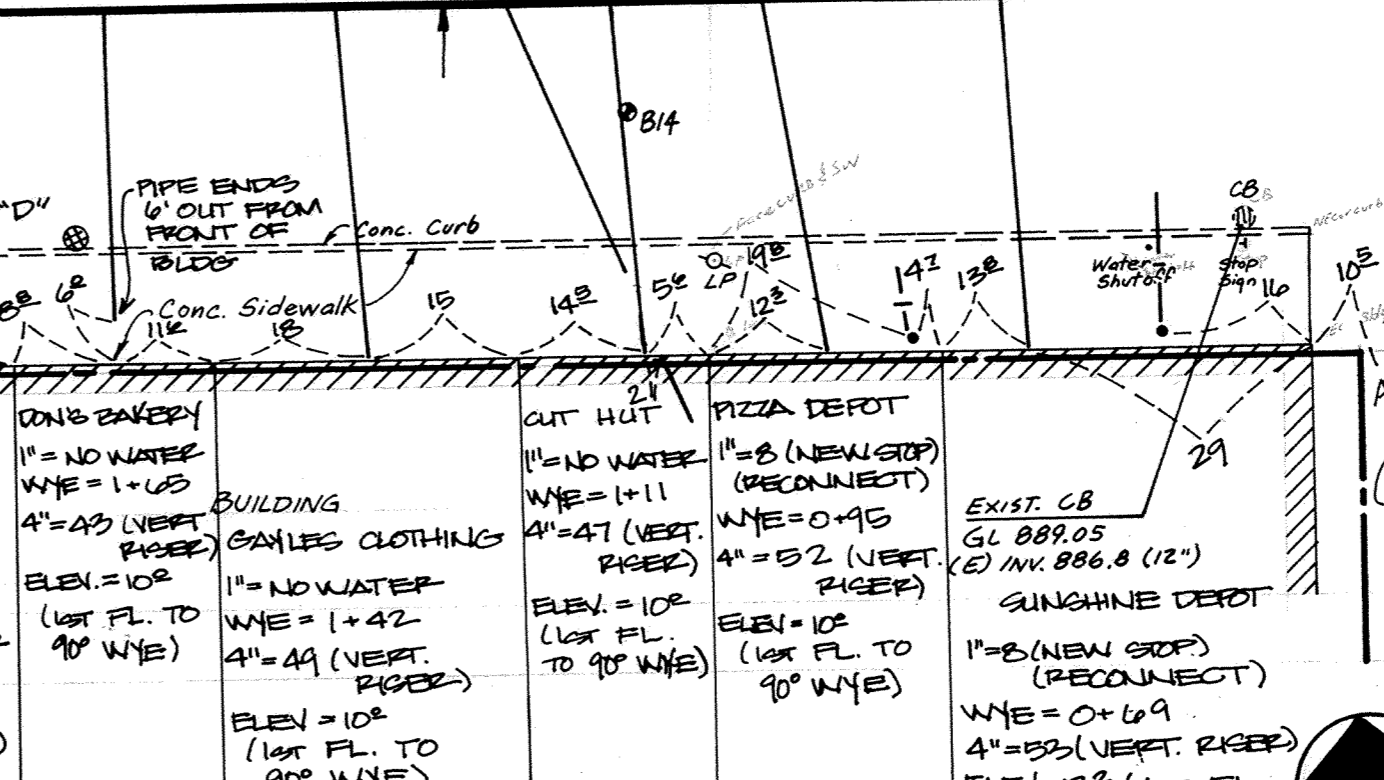 B14
CB
"D"
PIPE ENDS
6' OUT FROM
FRONT OF
BLDG
Conc. Curb
NE cor curb
LP
Water
Shutoff
Stop
Sign
Conc. Sidewalk
8⁸
6²
11⁶
18
15
14⁵
5⁶
19⁸
12³
14⁷
13⁸
16
10⁵
21
29
DON'S BAKERY
1"=NO WATER
WYE = 1+65
4"=43 (VERT
RISER)
ELEV.=10²
(1ST FL. TO
90° WYE)
BUILDING
GAYLES CLOTHING
1"=NO WATER
WYE = 1+42
4"=49 (VERT.
RISER)
ELEV = 10²
(1ST FL. TO
90° WYE)
CUT HUT
1"=NO WATER
WYE = 1+11
4"=47 (VERT.
RISER)
ELEV. = 10²
(1ST FL.
TO 90° WYE)
PIZZA DEPOT
1"=8 (NEW STOP)
(RECONNECT)
WYE = 0+95
4"=52 (VERT.
RISER)
ELEV = 10²
(1ST FL. TO
90° WYE)
EXIST. CB
GL 889.05
(E) INV. 886.8 (12")
SUNSHINE DEPOT
1"=8 (NEW STOP.)
(RECONNECT)
WYE = 0+69
4"=53 (VERT. RISER)